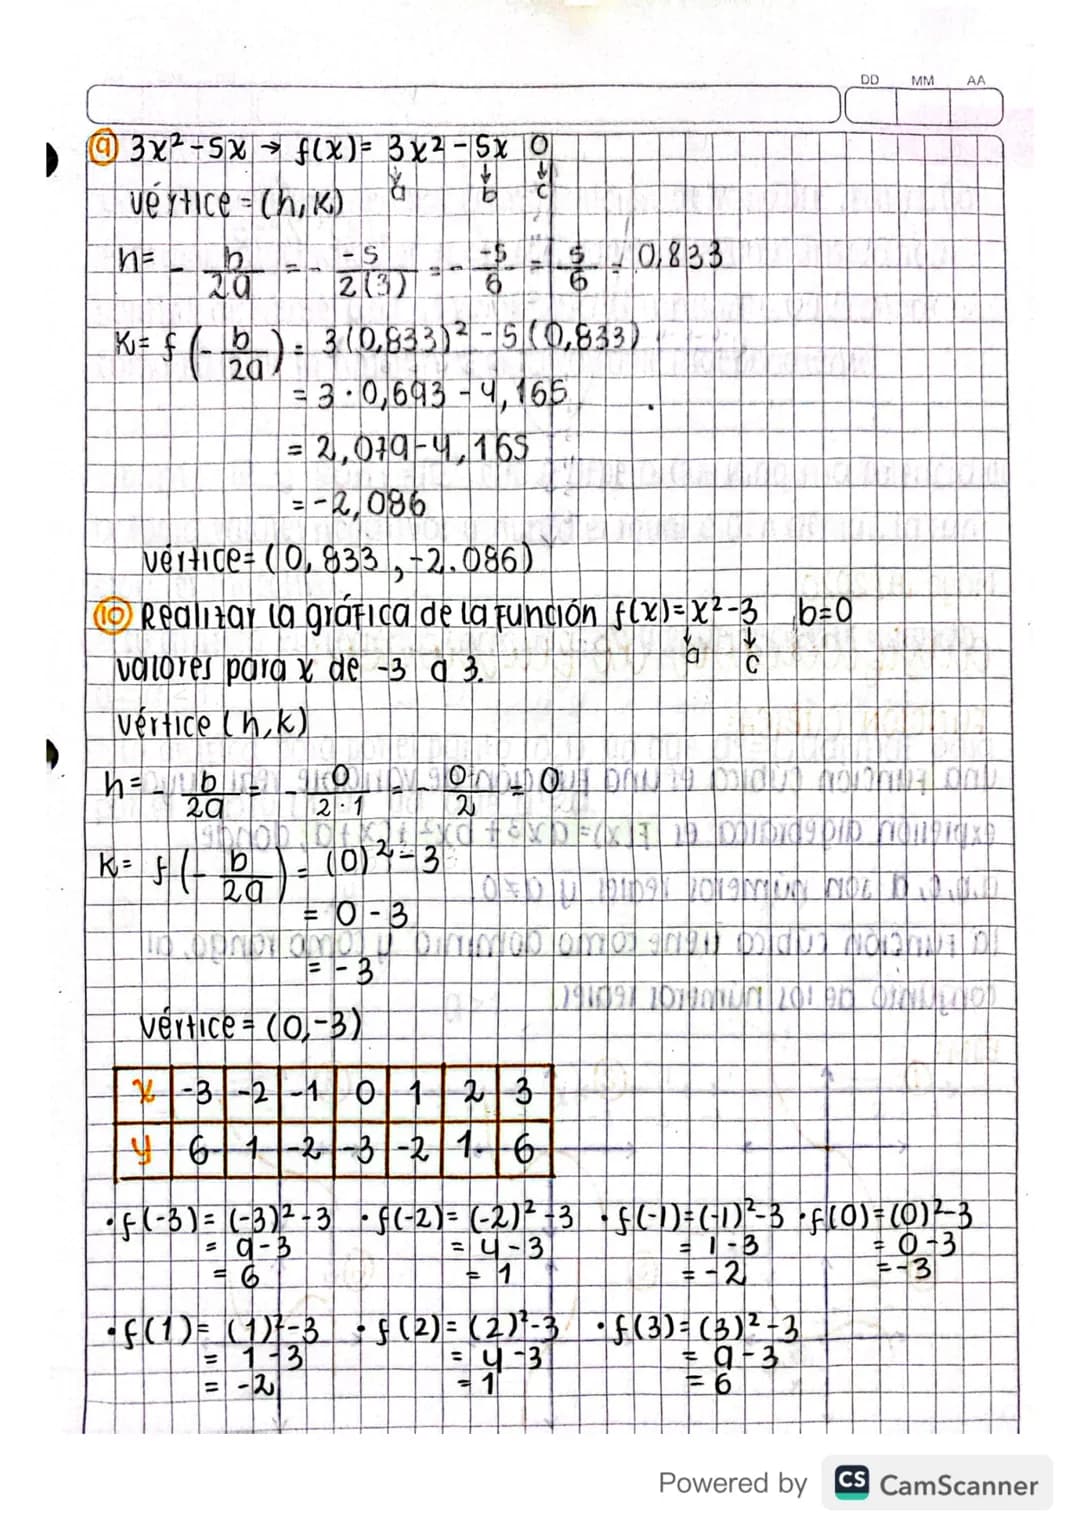 DD MM AA
9 3x²-5x → f(x)= 3x²-5x 0
↓ ↓ ↓
a b c
vértice = (h,k)
h= - b/2a = - -5/2(3) = - -5/6 = 5/6 = 0,833
K= f(- b/2a) = 3(0,833)² - 5(0,833)
= 3·0,693 - 4,165
= 2,079-4,165
= -2,086
vértice= (0,833 , -2.086)
10 Realizar la gráfica de la función f(x)=x²-3 b=0
↓ ↓
a c
valores para x de -3 a 3.
vértice (h,k)
h= - b/2a = - 0/2·1 = - 0/2 = 0
K= f(- b/2a) = (0)²-3
= 0-3
= -3
vértice = (0,-3)
x -3 -2 -1 0 1 2 3
y 6 1 -2 -3 -2 1 6
·f(-3)= (-3)²-3 ·f(-2)= (-2)²-3 ·f(-1)=(-1)²-3 ·f(0)=(0)²-3
= 9-3 = 4-3 = 1-3 = 0-3
= 6 = 1 = -2 =-3
·f(1)= (1)²-3 ·f(2)= (2)²-3 ·f(3)= (3)²-3
= 1-3 = 4-3 = 9-3
= -2 = 1 = 6
Powered by CS CamScanner